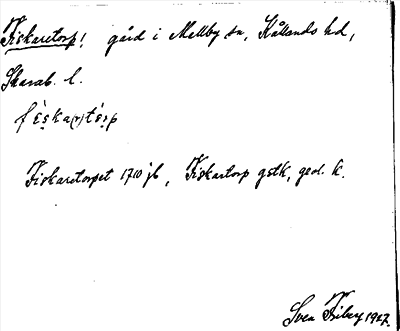 Fiskaretorp! gård i Mellby sn, Kållands hd,
Skarab. l.
fèska(r)tórp
Fiskaretorpet 1710 jb, Fiskartorp gstk, geol. k.
Sven Friberg 1927.